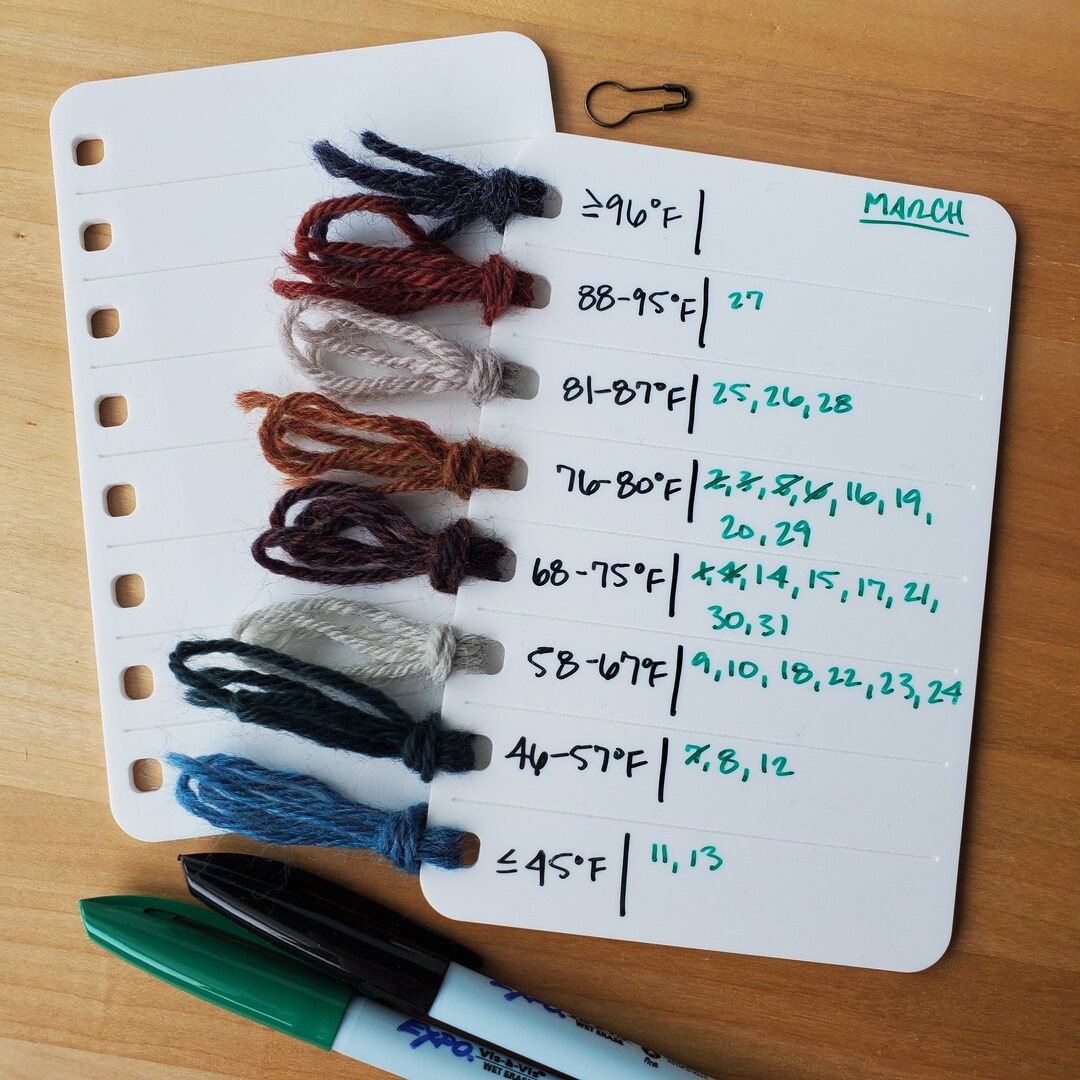 MARCH
≥96°F
88-95°F 27
81-87°F 25, 26, 28
76-80°F 2, 3, 5, 6, 16, 19,
20, 29
68-75°F 1, 4, 14, 15, 17, 21,
30, 31
58-67°F 9, 10, 18, 22, 23, 24
46-57°F 7, 8, 12
≤45°F 11, 13
EXPO
WET ERASE
fine
EXPO Vis-à-Vis
WET ERASE